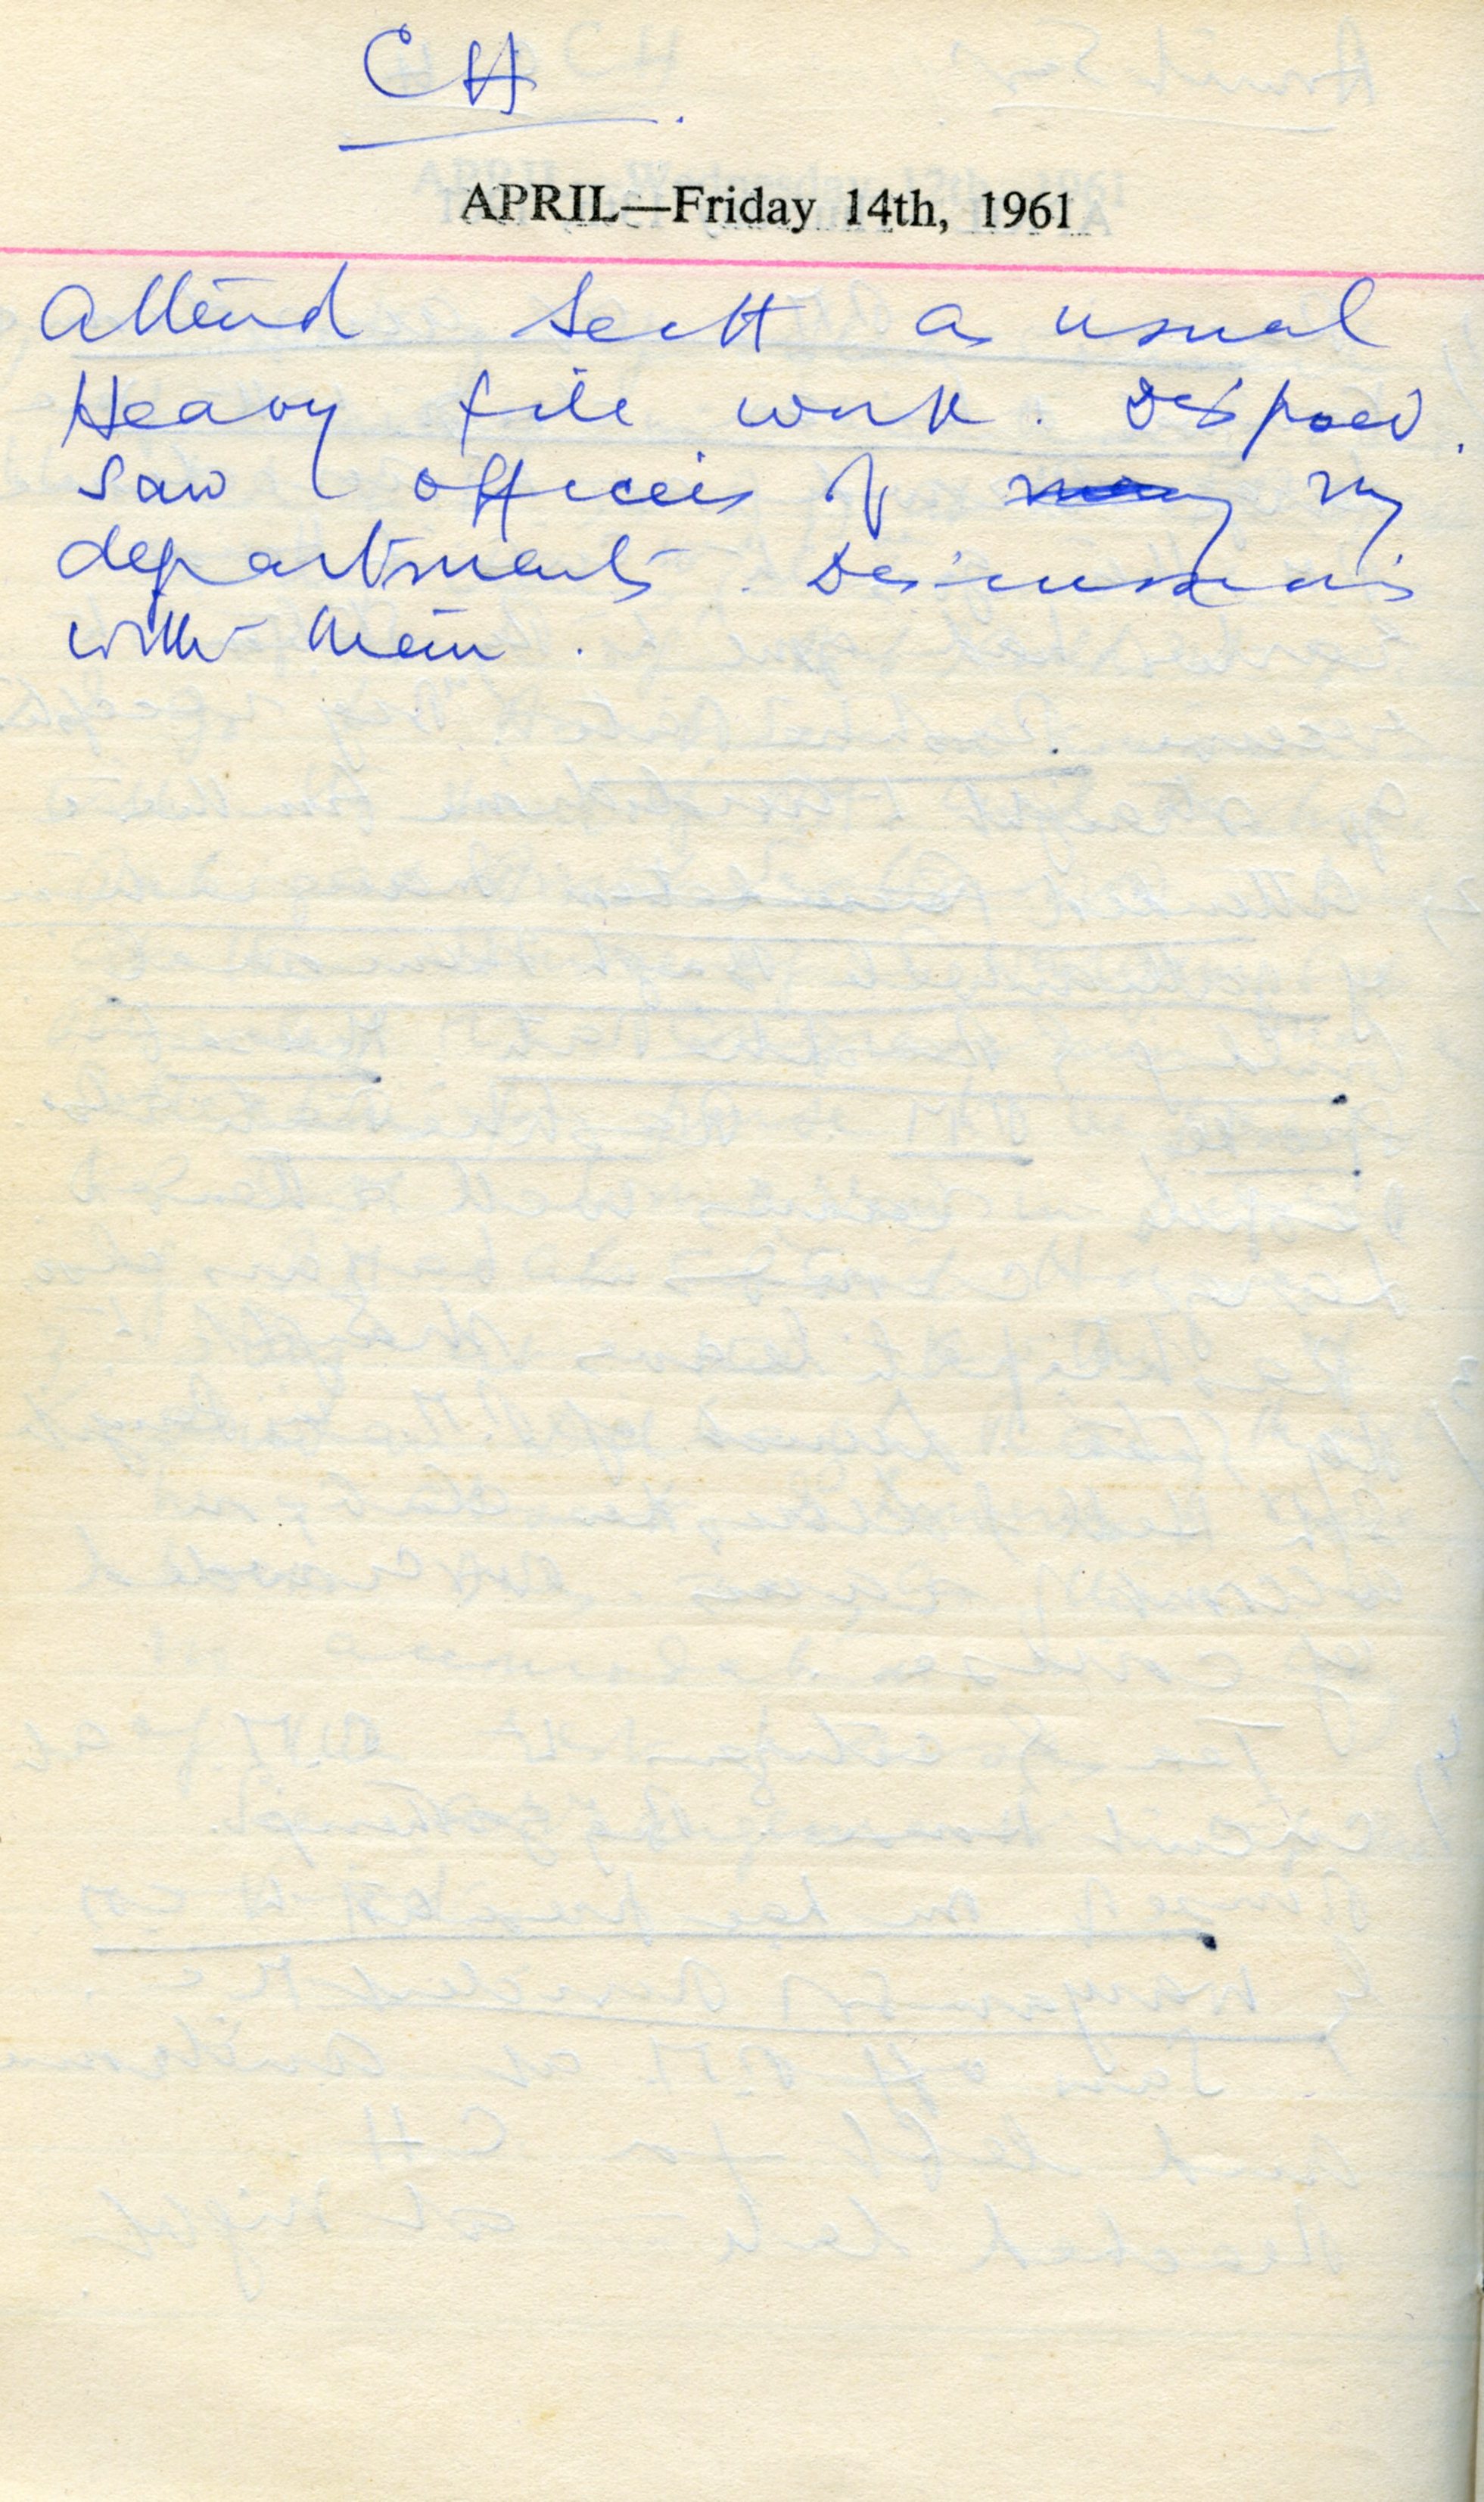 CH
APRIL—Friday 14th, 1961
Attend Sectt as usual
Heavy file work. Disposed.
Saw officers of my
departments. Discussions
with them.